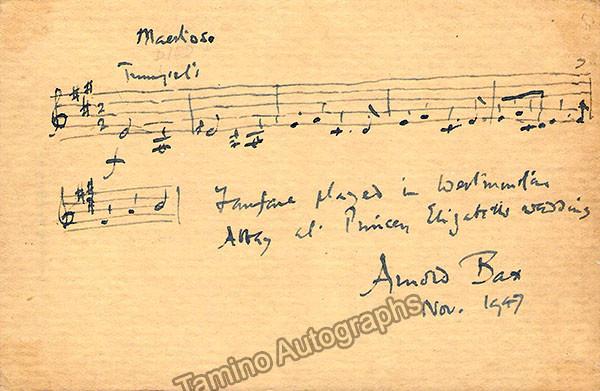 Maestoso
Trumpets
f
Fanfare played in Westminster
Abbey at Princess Elizabeth's wedding
Arnold Bax
Nov. 1947
Tamino Autographs